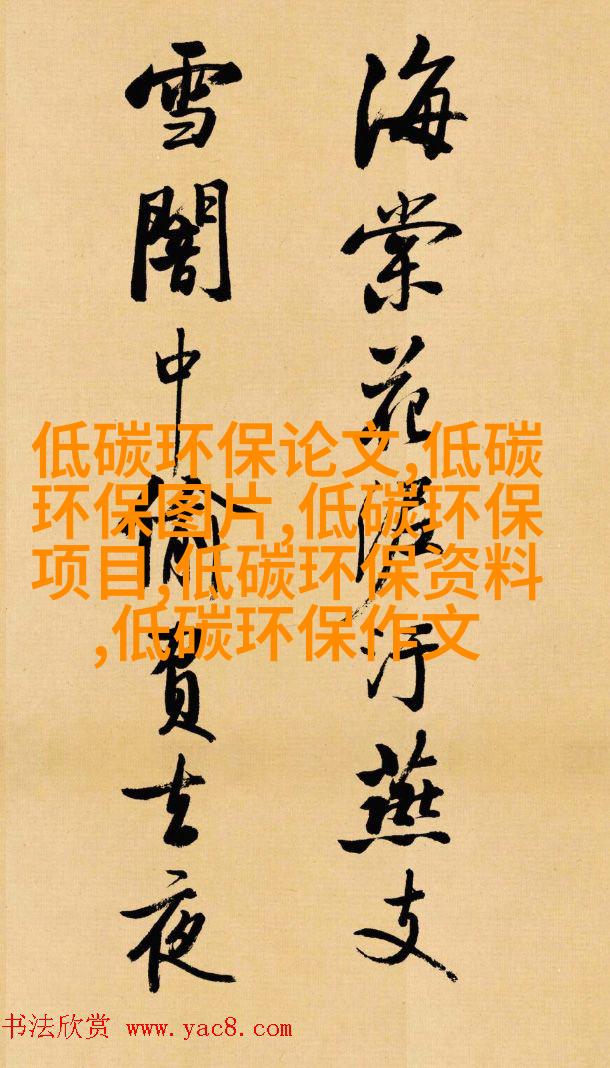 海棠花汙燕支
雪闇中偷負去夜
低碳环保论文,低碳
环保图片,低碳环保
项目,低碳环保资料
,低碳环保作文
书法欣赏 www.yac8.com